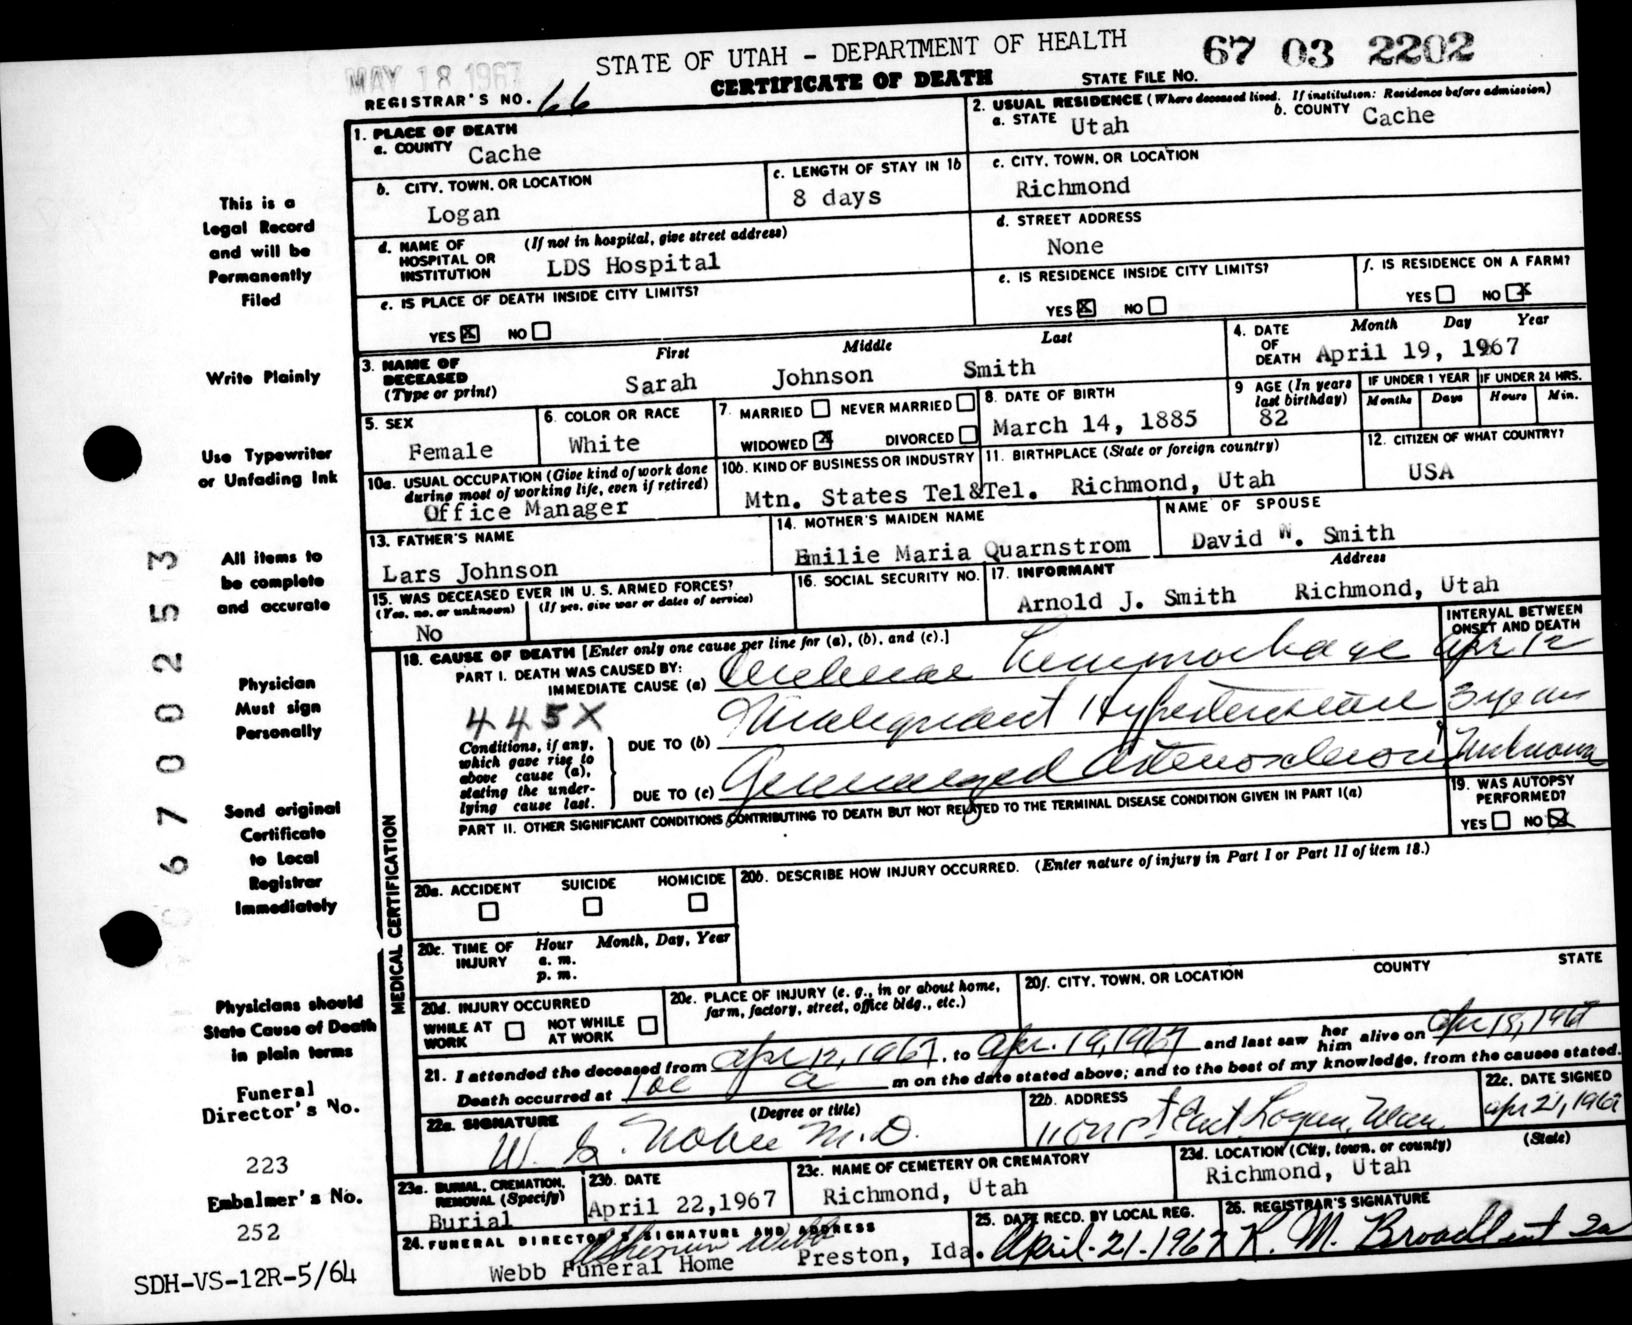 MAY 18 1967
STATE OF UTAH - DEPARTMENT OF HEALTH
67 03 2202
CERTIFICATE OF DEATH
STATE FILE NO.
REGISTRAR'S NO. 66
1. PLACE OF DEATH
a. COUNTY Cache
2. USUAL RESIDENCE (Where deceased lived. If institution: Residence before admission)
a. STATE Utah
b. COUNTY Cache
b. CITY, TOWN, OR LOCATION
Logan
c. LENGTH OF STAY IN 1b
8 days
c. CITY, TOWN, OR LOCATION
Richmond
d. NAME OF HOSPITAL OR INSTITUTION (If not in hospital, give street address)
LDS Hospital
d. STREET ADDRESS
None
e. IS PLACE OF DEATH INSIDE CITY LIMITS?
YES X NO
e. IS RESIDENCE INSIDE CITY LIMITS?
YES X NO
f. IS RESIDENCE ON A FARM?
YES NO X
3. NAME OF DECEASED (Type or print)
First Middle Last
Sarah Johnson Smith
4. DATE OF DEATH Month Day Year
April 19, 1967
5. SEX
Female
6. COLOR OR RACE
White
7. MARRIED NEVER MARRIED
WIDOWED X DIVORCED
8. DATE OF BIRTH
March 14, 1885
9 AGE (In years last birthday)
82
IF UNDER 1 YEAR
Months Days
IF UNDER 24 HRS.
Hours Min.
10a. USUAL OCCUPATION (Give kind of work done during most of working life, even if retired)
Office Manager
10b. KIND OF BUSINESS OR INDUSTRY
Mtn. States Tel&Tel.
11. BIRTHPLACE (State or foreign country)
Richmond, Utah
12. CITIZEN OF WHAT COUNTRY?
USA
13. FATHER'S NAME
Lars Johnson
14. MOTHER'S MAIDEN NAME
Emilie Maria Quarnstrom
NAME OF SPOUSE
David W. Smith
15. WAS DECEASED EVER IN U. S. ARMED FORCES?
(Yes, no, or unknown) (If yes, give war or dates of service)
No
16. SOCIAL SECURITY NO.
17. INFORMANT Address
Arnold J. Smith Richmond, Utah
MEDICAL CERTIFICATION
18. CAUSE OF DEATH [Enter only one cause per line for (a), (b), and (c).]
INTERVAL BETWEEN ONSET AND DEATH
PART I. DEATH WAS CAUSED BY:
IMMEDIATE CAUSE (a) hemmorhage Apr 12
445X
Conditions, if any, which gave rise to above cause (a), stating the underlying cause last.
DUE TO (b) Malignant Hypertension 3 years
DUE TO (c) Generalized Arteriosclerosis Unknown
PART II. OTHER SIGNIFICANT CONDITIONS CONTRIBUTING TO DEATH BUT NOT RELATED TO THE TERMINAL DISEASE CONDITION GIVEN IN PART I(a)
19. WAS AUTOPSY PERFORMED?
YES NO X
20a. ACCIDENT SUICIDE HOMICIDE
20b. DESCRIBE HOW INJURY OCCURRED. (Enter nature of injury in Part I or Part II of item 18.)
20c. TIME OF INJURY Hour Month, Day, Year
a. m.
p. m.
20d. INJURY OCCURRED
WHILE AT WORK NOT WHILE AT WORK
20e. PLACE OF INJURY (e. g., in or about home, farm, factory, street, office bldg., etc.)
20f. CITY, TOWN, OR LOCATION COUNTY STATE
21. I attended the deceased from Apr 12, 1967, to Apr. 19, 1967 and last saw her him alive on Apr 18, 1967
Death occurred at a m on the date stated above; and to the best of my knowledge, from the causes stated.
22a. SIGNATURE (Degree or title)
M.D.
22b. ADDRESS
East Logan, Utah
22c. DATE SIGNED
Apr 21, 1967
23a. BURIAL, CREMATION, REMOVAL (Specify)
Burial
23b. DATE
April 22,1967
23c. NAME OF CEMETERY OR CREMATORY
Richmond, Utah
23d. LOCATION (City, town, or county) (State)
Richmond, Utah
24. FUNERAL DIRECTOR'S SIGNATURE AND ADDRESS
Webb
Webb Funeral Home Preston, Ida.
25. DATE RECD. BY LOCAL REG.
April-21-1967
26. REGISTRAR'S SIGNATURE
K. M. Broadbent
This is a
Legal Record
and will be
Permanently
Filed
Write Plainly
Use Typewriter
or Unfading Ink
All items to
be complete
and accurate
Physician
Must sign
Personally
Send original
Certificate
to Local
Registrar
Immediately
Physicians should
State Cause of Death
in plain terms
Funeral
Director's No.
223
Embalmer's No.
252
SDH-VS-12R-5/64
67000253